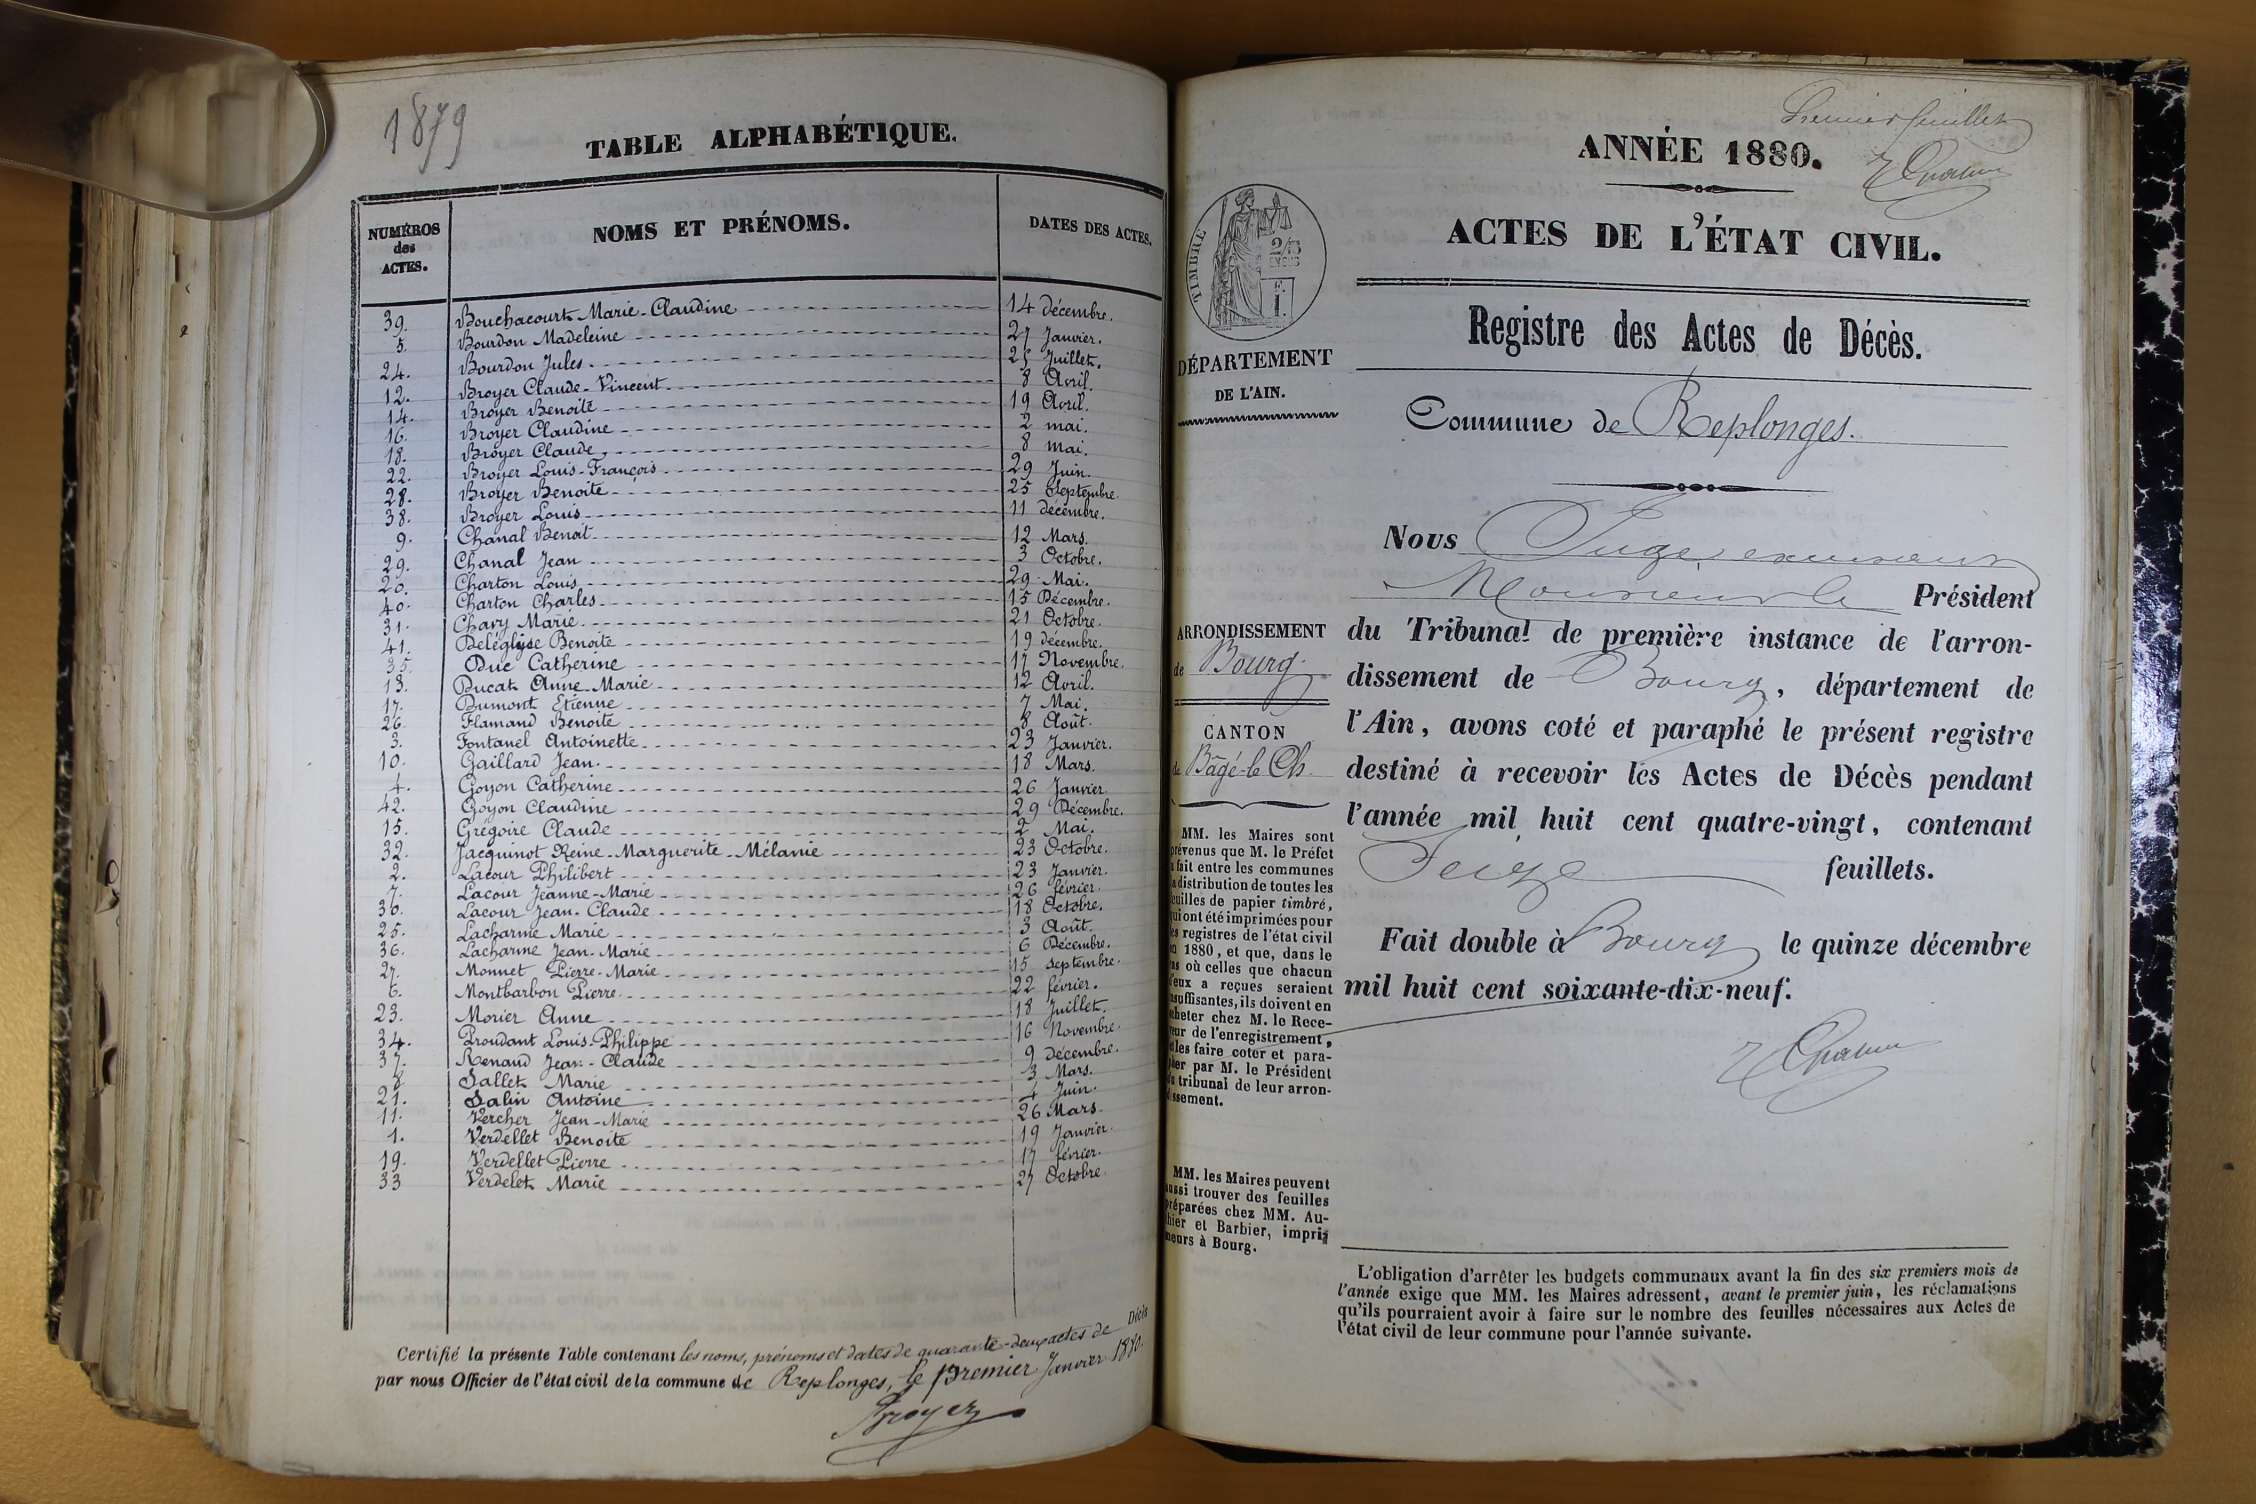 1879
TABLE ALPHABÉTIQUE.
NUMÉROS des ACTES.
NOMS ET PRÉNOMS.
DATES DES ACTES.
39. Bouchacourt Marie-Claudine 14 décembre.
5. Bourdon Madeleine 27 Janvier.
24. Bourdon Jules 25 Juillet.
12. Broyer Claude-Vincent 8 Avril.
14. Broyer Benoite 19 Avril.
16. Broyer Claudine 2 mai.
18. Broyer Claude 8 mai.
22. Broyer Louis-François 29 Juin.
28. Broyer Benoite 25 Septembre.
38. Broyer Louis 11 décembre.
9. Chanal Benoit 12 Mars.
29. Chanal Jean 3 Octobre.
20. Charton Louis 29 Mai.
40. Charton Charles 15 Décembre.
31. Chavy Marie 21 Octobre.
41. Deléglise Benoite 19 décembre.
35. Duc Catherine 17 Novembre.
13. Ducat Anne-Marie 12 Avril.
17. Dumont Etienne 7 Mai.
26. Flamand Benoite 8 Août.
3. Fontanel Antoinette 23 Janvier.
10. Gaillard Jean 18 Mars.
4. Goyon Catherine 26 Janvier
42. Goyon Claudine 29 Décembre.
15. Grégoire Claude 2 Mai.
32. Jacquinot Reine-Marguerite-Mélanie 23 Octobre.
2. Lacour Philibert 23 Janvier.
7. Lacour Jeanne-Marie 26 février.
30. Lacour Jean-Claude 18 Octobre.
25. Lacharme Marie 3 Août.
36. Lacharme Jean-Marie 6 Décembre.
27. Monnet Pierre-Marie 15 septembre.
6. Montbarbon Pierre 22 février.
23. Morier Anne 18 Juillet.
34. Proudant Louis-Philippe 16 Novembre.
37. Renaud Jean-Claude 9 décembre.
8 Sallet Marie 3 Mars.
21. Salin Antoine 4 Juin.
11. Vercher Jean-Marie 26 Mars.
1. Verdellet Benoite 19 Janvier.
19. Verdellet Pierre 17 février.
33 Verdelet Marie 27 Octobre.
Certifié la présente Table contenant les noms, prénoms et dates de quarante-deux actes de Décès
par nous Officier de l'état civil de la commune de Replonges, le Premier Janvier 1880.
Broyer
Premier feuillet
ANNÉE 1880.
ACTES DE L'ÉTAT CIVIL.
TIMBRE
2/10
EN SUS
F.
1.
DÉPARTEMENT
DE L'AIN.
ARRONDISSEMENT
de Bourg.
CANTON
de Bâgé-le Ch.
MM. les Maires sont
prévenus que M. le Préfet
a fait entre les communes
la distribution de toutes les
feuilles de papier timbré,
qui ont été imprimées pour
les registres de l'état civil
en 1880, et que, dans le
cas où celles que chacun
d'eux a reçues seraient
insuffisantes, ils doivent en
acheter chez M. le Rece-
veur de l'enregistrement,
et les faire coter et para-
pher par M. le Président
du tribunal de leur arron-
dissement.
MM. les Maires peuvent
aussi trouver des feuilles
préparées chez MM. Au-
thier et Barbier, impri-
meurs à Bourg.
Registre des Actes de Décès.
Commune de Replonges.
Nous Juge, exerçant
Monsieur le Président
du Tribunal de première instance de l'arron-
dissement de Bourg, département de
l'Ain, avons coté et paraphé le présent registre
destiné à recevoir les Actes de Décès pendant
l'année mil huit cent quatre-vingt, contenant
Seize feuillets.
Fait double à Bourg le quinze décembre
mil huit cent soixante-dix-neuf.
L'obligation d'arrêter les budgets communaux avant la fin des six premiers mois de
l'année exige que MM. les Maires adressent, avant le premier juin, les réclamations
qu'ils pourraient avoir à faire sur le nombre des feuilles nécessaires aux Actes de
l'état civil de leur commune pour l'année suivante.